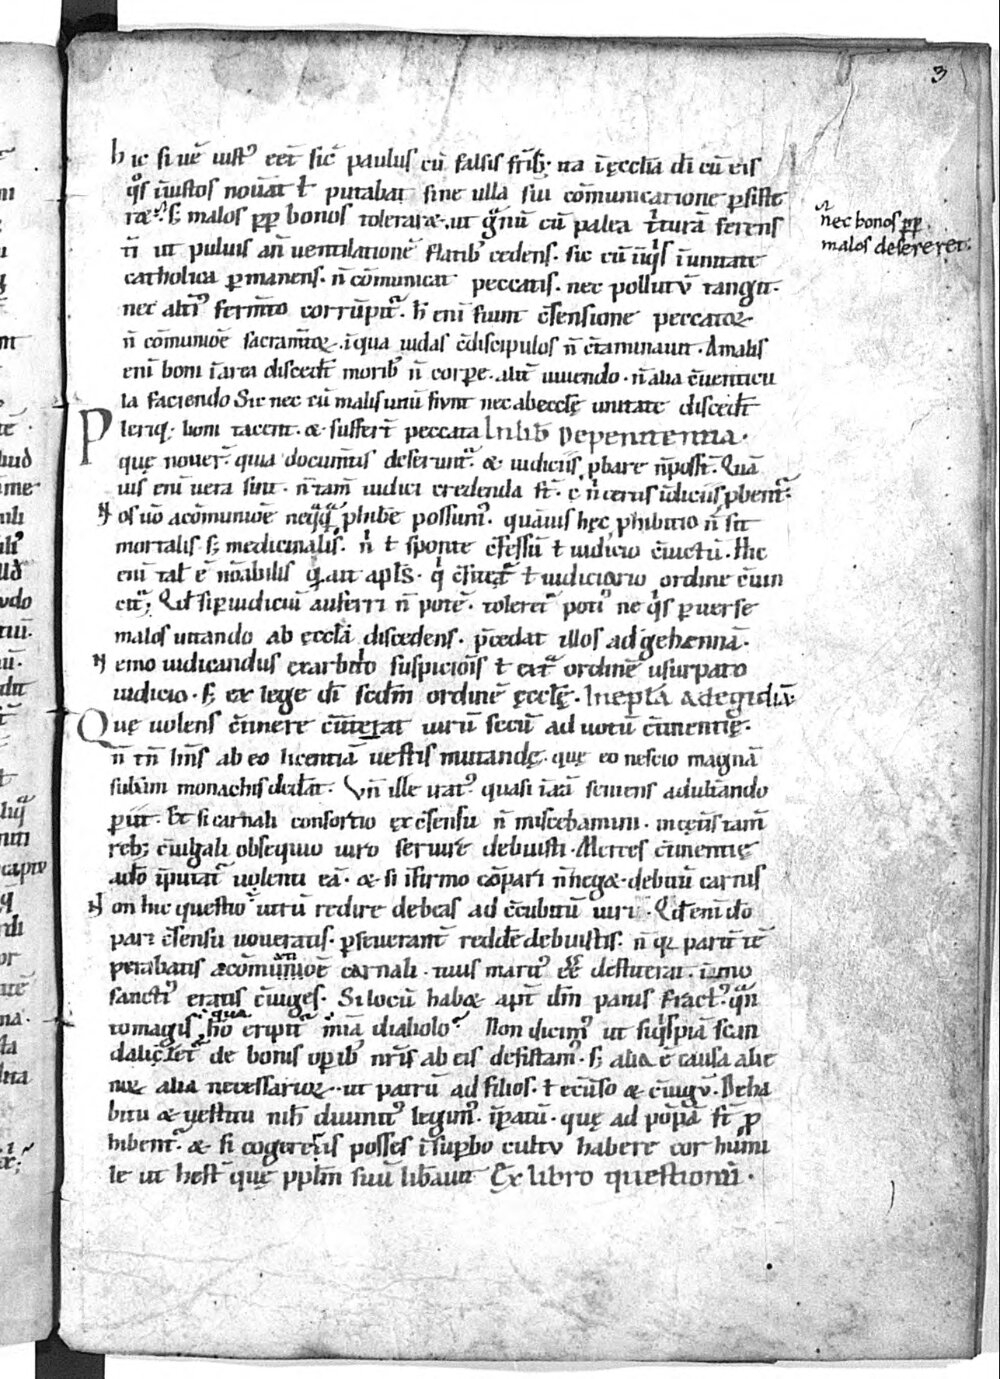 3
hic si uē iustꝰ eēt sic̄ paulus cū falsis frīb; ita ī ęcclīa dī cū eis
qͦs iniustos nouāt ł putabat sine ulla sui cōmunicatione ꝑsiste
ræ. s; malos ꝓp bonos toleraræ. ut gͣnū cū palea tͥturā ferens
n̄ ut puluis an̄ uentilationē flatib; cedens. sic cū inͥqͥs ī unitate
catholica ꝑmanens. n̄ cōmunicat peccatis. nec pollutū tangit.
nec altiꝰ ferm̄to corrūpit᷑. h̄ enī fiunt c̄sensione peccatoꝝ
n̄ cōmuniōe sacram̄toꝝ. ī qua iudas c̄discipulos n̄ c̄taminauit. A malis
enī boni ī area discedt̄ morib; n̄ corꝑe. alit̄ uiuendo. n̄ alia c̄uenticu
la faciendo Sic nec cū malis unū fiunt nec ab ecclę unitate discedt̄
Pleriq; boni tacent. & suffert̄ peccata In lib̄ De penitentia.
quę nouer̄. quia documt̄is deserunt᷑. & iudiciis ꝓbare n̄ posst̄. Quā
uis enī uera sint. n̄ tam̄ iudici credenda st̄. ẹ n̄ certis īdiciis ꝓbent᷑
Nos uō a cōmuniōe nēqͣqͣ ꝓhibē possum᷒. quāuis hęc ꝓhibitio n̄ sit
mortalis s; medicinalis. n̄ ł sponte c̄fessū ł iudicio c̄uictū. Hic
enī tał ē nōabilis q̄ ait apłs. qͥ c̄suet᷑ ł iudiciario ordine c̄uin
cit᷑; Qđ si ꝑ iudiciū auferri n̄ potē. toleret᷑ potiꝰ ne qͥs ꝑuerse
malos uitando ab ęcclā discedens. p̄cedat illos ad gehennā.
Nemo iudicandus ex arbitͦ suspiciōis ł extͣ ordinē usurpato
iudicio. s; ex lege dī scdm̄ ordinē ęcclę. In eplā ad egidiā.
Quę uolens c̄tinere c̄tīerat uirū secū ad uotū c̄tinentię.
n̄ tn̄ hn̄s ab eo licentiā uestis mutandę. quę eo nescio magnā
sub̄am monachis ded̄at. Vn̄ ille iratꝰ quasi īzā seruiens adultāndo
ꝑiit. Et si carnali consortio ex c̄sensu n̄ miscebamini. in cęt̄is tam̄
reb; c̄iugali obsequio uiro seruire debuisti. Merces c̄tinentię
a dō īputat᷑ uolenti eā. & si īfirmo cōpari n̄ neg&. debitū carnis
Non hic questio utrū redire debeas ad c̄cubitū uiri. Qđ enī dō
pari c̄sensu uoueratis. ꝑseuerant̄ redde debuistis. n̄ qꝫ paritͥ tē
perabatis a cōmuniōe carnali. tuus maritꝰ eē destiterat. immo
sanctiꝰ eratis c̄iuges. Si locū hab& apt̄ dm̄ panis fract᷒. qͣn
to magis hō eriptꝰ mīa diabolo᷑ Non dicimꝰ ut siqͥspiā scan
daliz&᷑ de bonis oꝑib; nrīs ab eis desistam᷒. s; alia ē causa alie
noꝝ alia necessarioꝝ. ut patrū ad filios. ł ecūso & c̄iugū. De ha
bitu & uestitu nih̄ diuinitꝰ legim᷒. īpatū. quę ad pōpā st̄ ꝓ
hibent᷑. & si cogereris posses ī suꝑbo cultu habere cor humi
le ut hest̄ quę ppłm suū libauit Ex libro questionū.
nec bonos ꝓp
malos desereret: